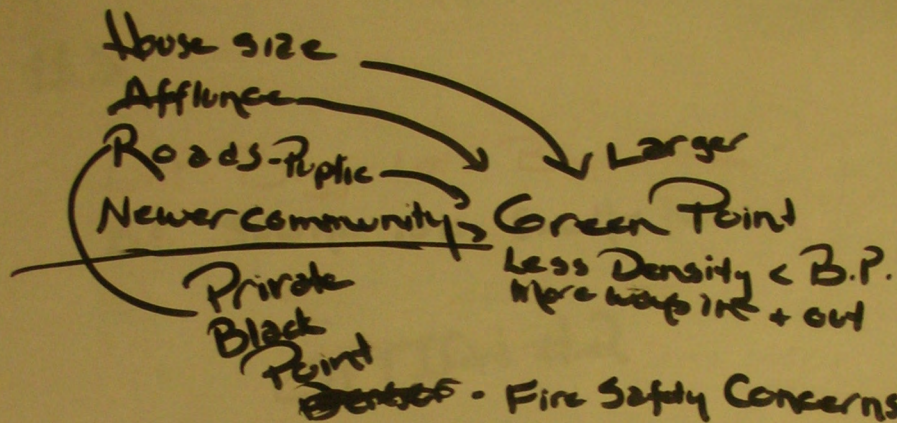 House size
Affluncce
Roads-Puplic
Larger
Newer community
Green Point
Less Density < B.P.
More ways in + out
Private
Black
Point
- Fire Safety Concerns